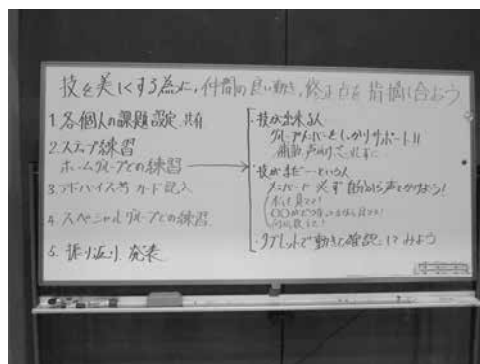 技を美しくする為に、仲間の良い動き、修正点を指摘し合おう
1. 各個人の課題設定、共有
2. ステップ練習
ホームグループでの練習
3. アドバイス等 カード記入
4. スペシャルグループでの練習
5. 振り返り、発表
・技が出来る人
グループメンバーをしっかりサポート!!
補助、声かけ
・技がまだ…という人
メンバーに必ず自分から声をかけよう!
・タブレットで動きを確認してみよう